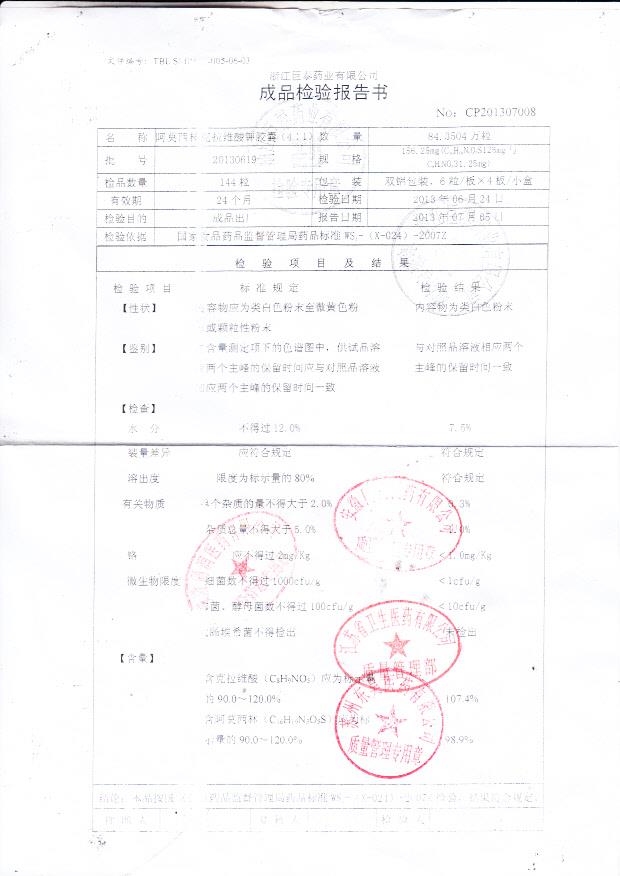 浙江巨泰药业有限公司
成品检验报告书
No: CP201307008
名 称 阿莫西林克拉维酸钾胶囊(4:1) 数 量 84.3504万粒
批 号 20130619 规 格 156.25mg
检品数量 144粒 包 装 双铝包装，6粒/板×4板/小盒
有效期 24个月 检验日期 2013年06月24日
检验目的 成品出厂 报告日期 2013年07月05日
检验依据 国家食品药品监督管理局药品标准WS₁-(X-024)-2007Z
检 验 项 目 及 结 果
检 验 项 目 标 准 规 定 检 验 结 果
【性状】 容物应为类白色粉末至微黄色粉 内容物为类白色粉末
或颗粒性粉末
【鉴别】 含量测定项下的色谱图中，供试品溶 与对照品溶液相应两个
两个主峰的保留时间应与对照品溶液 主峰的保留时间一致
应两个主峰的保留时间一致
【检查】
水 分 不得过12.0% 7.5%
装量差异 应符合规定 符合规定
溶出度 限度为标示量的80% 符合规定
有关物质 个杂质的量不得大于2.0%
杂质总量不得大于5.0%
铬 应不得过2mg/Kg <1.0mg/Kg
微生物限度 细菌数不得过1000cfu/g <1cfu/g
菌、酵母菌数不得过100cfu/g <10cfu/g
大肠埃希菌不得检出 未检出
【含量】
含克拉维酸（C₈H₉NO₅）应为标示量
的90.0～120.0% 107.4%
含阿莫西林（C₁₆H₁₉N₃O₅S）应为标
示量的90.0～120.0% 98.9%
江苏省卫生医药有限公司
质量管理部
质量管理专用章
结论：本品按国家食品药品监督管理局药品标准WS₁-(X-024)-2007Z检验，结果符合规定。
检 验 人